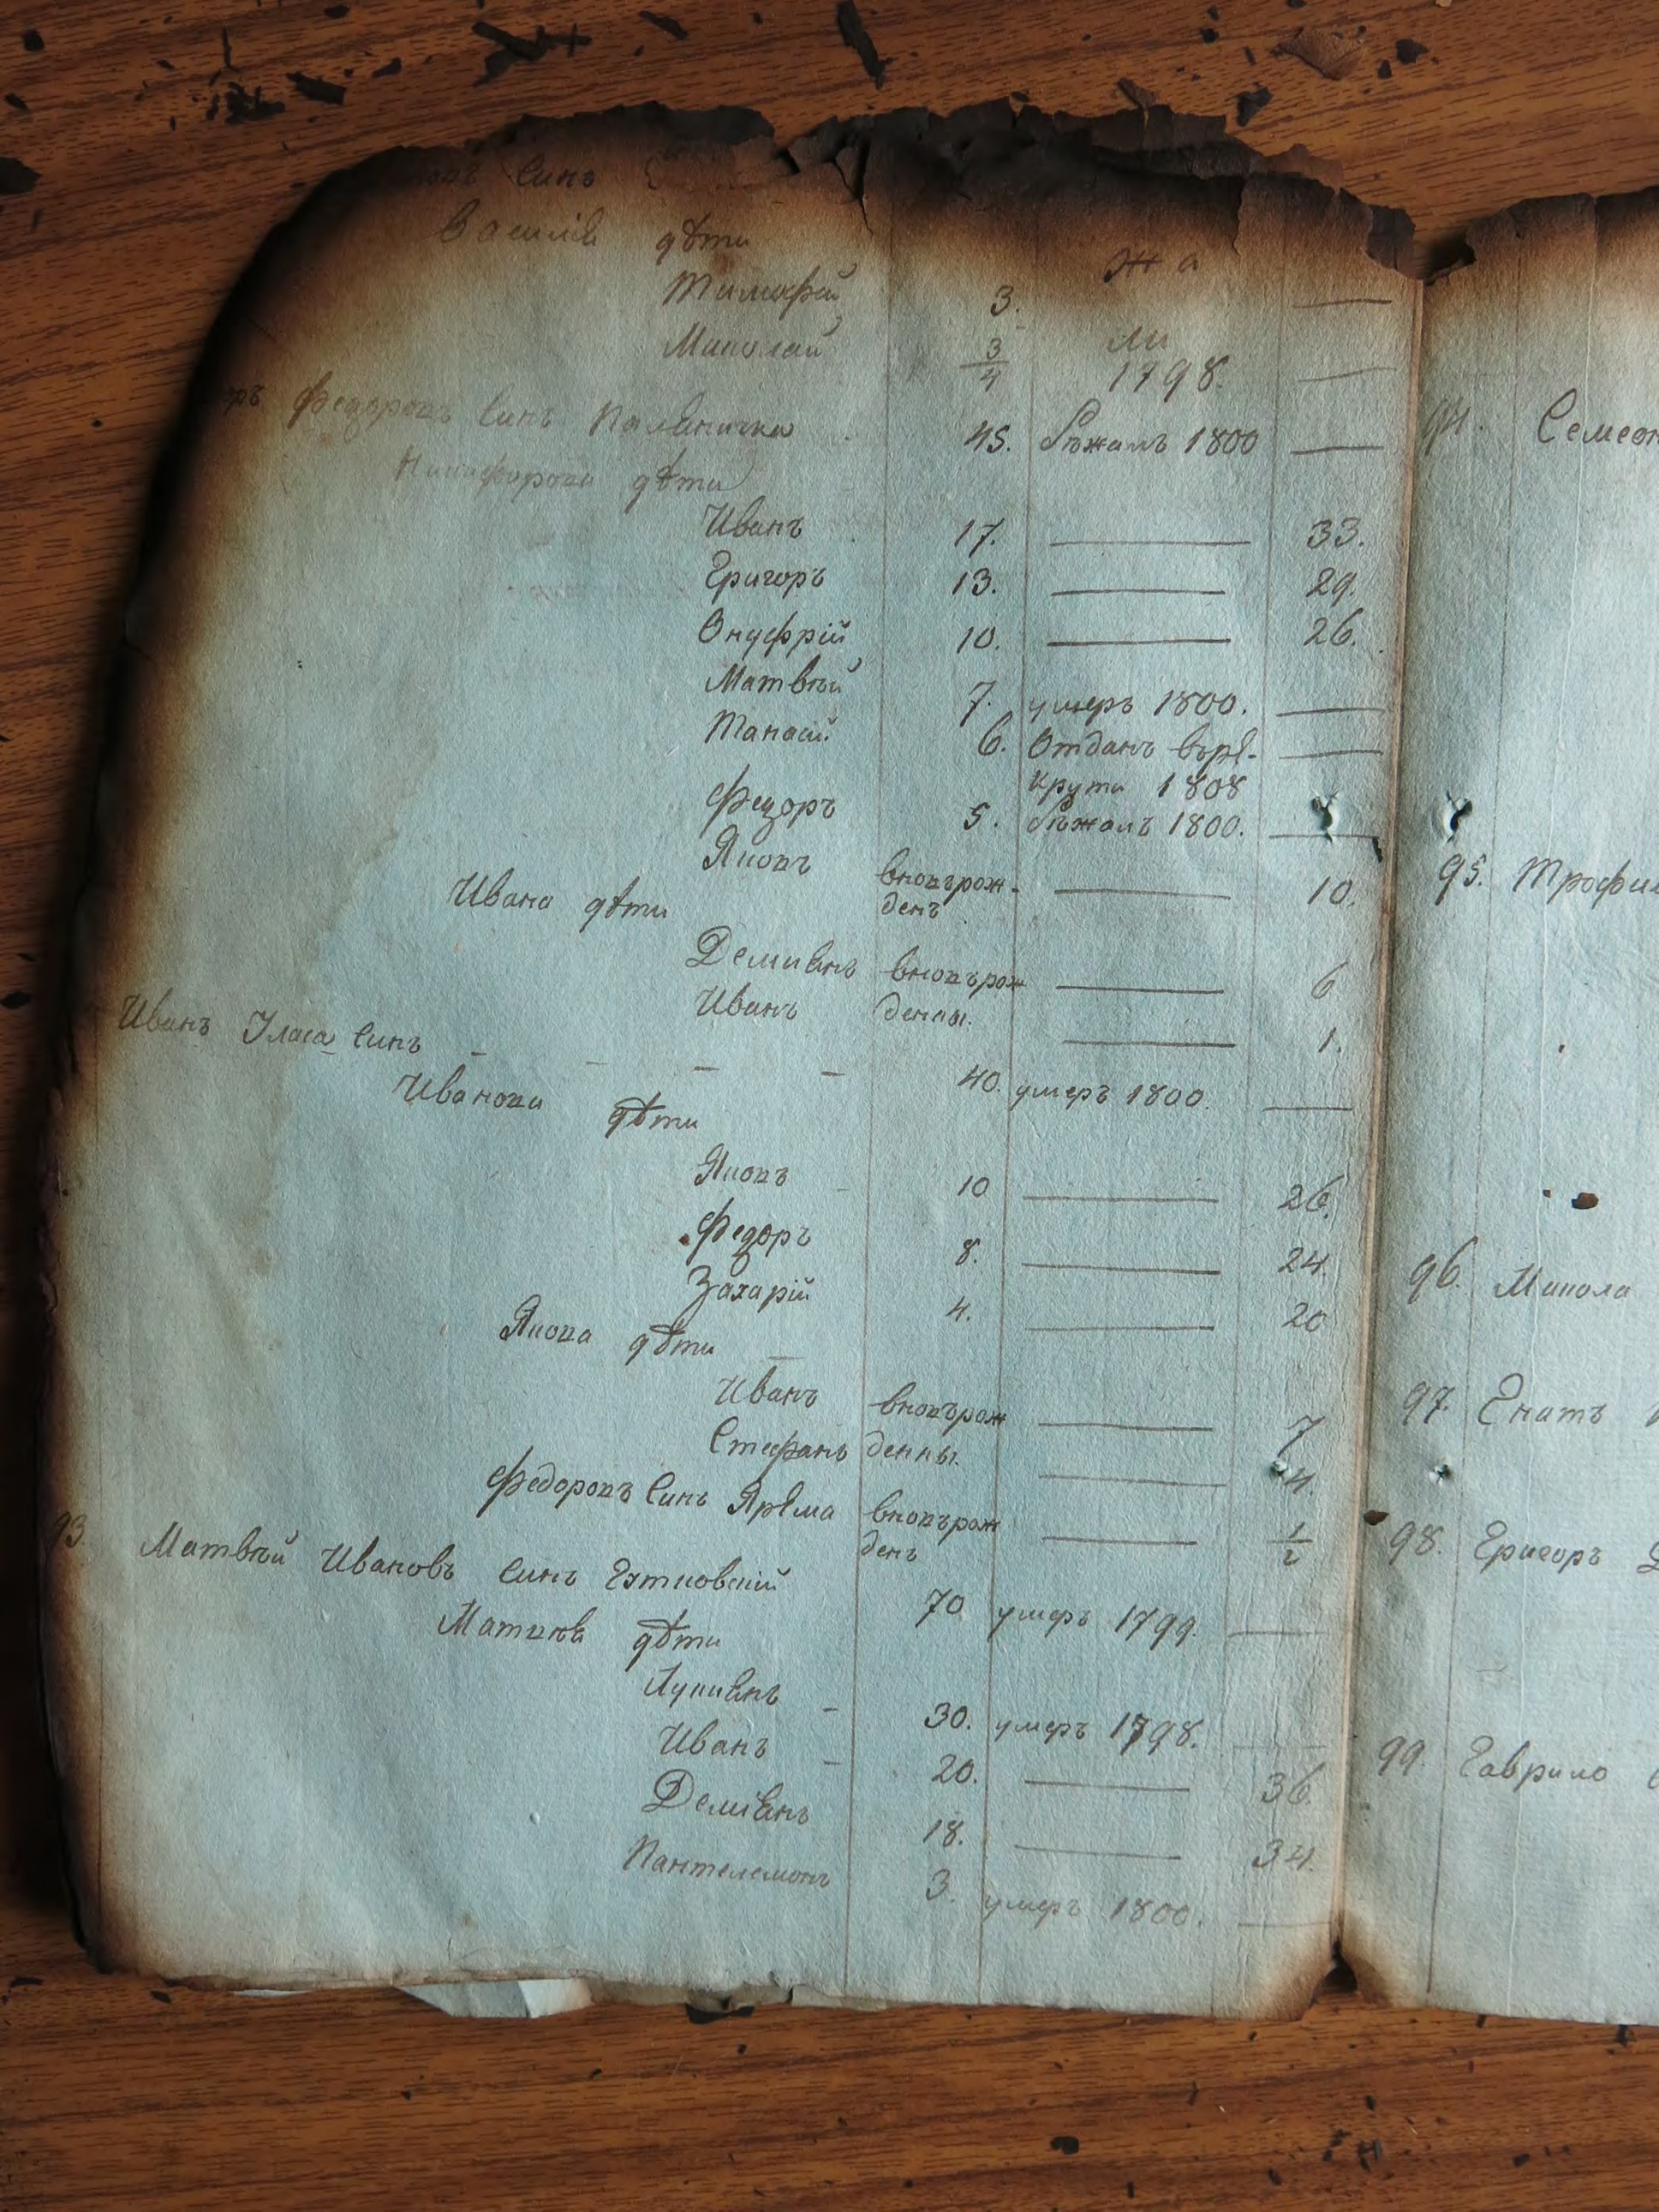 Синъ
Василія дѣти
Тимофѣй 3. —
Миколай 3/4 1798. —
Федоровъ Синъ Паляничка 45. бѣжалъ 1800 —
Никифорова дѣти
Иванъ 17. — 33.
Григоръ 13. — 29.
Онуфрій 10. — 26.
Матвѣй 7. умеръ 1800. —
Танасій 6. Отданъ врѣ-
крути 1808 —
Федоръ 5. бѣжалъ 1800. —
Яковъ вновърож-
денъ — 10.
Ивана дѣти
Демиянъ вновърож — 6
Иванъ денны. — 1.
Иванъ Уласа Синъ - - - - 40. умеръ 1800. —
Иванова дѣти
Яковъ - 10 — 26.
Федоръ 8. — 24.
Захарій 4. — 20
Якова дѣти
Иванъ вновърож — 7
Стефанъ денны. — 4.
Федоровъ Синъ Ярема вновърож
денъ — 1/2
93. Матвѣй Ивановъ Синъ 70 умеръ 1799. —
Матвѣя дѣти
Лукиянъ - 30. умеръ 1798. —
Иванъ - 20. — 36.
Демиянъ 18. — 34.
Пантелемонъ 3. умеръ 1800. —
94. Семеон
95. Трофим
96. Микола
97. Гнатъ
98. Григоръ
99. Гаврило